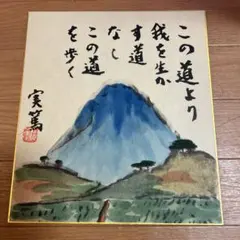 この道より
我を生か
す道
なし
この道
を歩く
実篤